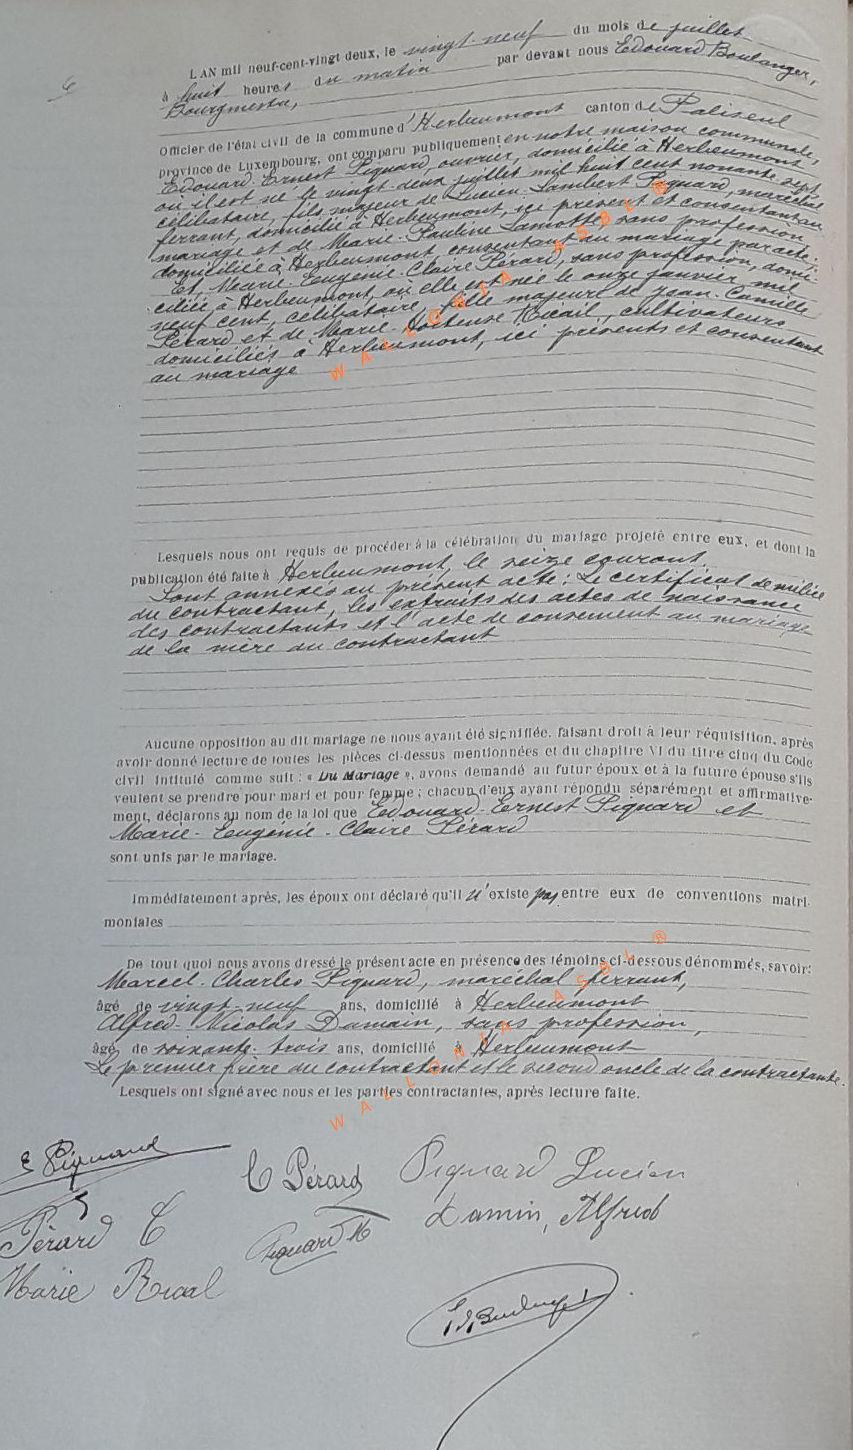 6
L'AN mil neuf-cent-vingt deux, le vingt neuf du mois de juillet
à huit heures du matin par devant nous Edouard Boulanger,
Bourgmestre,
Officier de l'état civil de la commune d'Herbeumont canton de Paliseul
province de Luxembourg, ont comparu publiquement en notre maison communale,
Edouard-Ernest Piquard, ouvrier, domicilié à Herbeumont
où il est né le vingt-deux juillet mil huit cent nonante sept
célibataire, fils majeur de Lucien-Lambert Piquard, maréchal
ferrant, domicilié à Herbeumont, ici présent et consentant au
mariage et de Marie-Pauline Lamotte, sans profession
domiciliée à Herbeumont, consentant au mariage par acte;
Et, Marie-Eugénie-Claire Pérard, sans profession, domi-
ciliée à Herbeumont, où elle est née le onze janvier mil
neuf cent, célibataire, fille majeure de Jean-Camille
Pérard et de Marie-Hortense Ricail, cultivateurs
domiciliés à Herbeumont, ici présents et consentant
au mariage
Lesquels nous ont requis de procéder à la célébration du mariage projeté entre eux, et dont la
publication été faite à Herbeumont, le seize courant.
Sont annexés au présent acte: Le certificat de milice
du contractant, les extraits des actes de naissance
des contractants et l'acte de consement au mariage
de la mère du contractant
Aucune opposition au dit mariage ne nous ayant été signifiée, faisant droit à leur réquisition, après
avoir donné lecture de toutes les pièces ci-dessus mentionnées et du chapitre VI du titre cinq du Code
civil intitulé comme suit : « Du Mariage », avons demandé au futur époux et à la future épouse s'ils
veulent se prendre pour mari et pour femme ; chacun d'eux ayant répondu séparément et affirmative-
ment, déclarons au nom de la loi que Edouard-Ernest Piquard et
Marie-Eugénie-Claire Pérard
sont unis par le mariage.
Immédiatement après, les époux ont déclaré qu'il n'existe pas entre eux de conventions matri-
moniales
De tout quoi nous avons dressé le présent acte en présence des témoins ci-dessous dénommés, savoir:
Marcel-Charles Piquard, maréchal ferrant,
âgé de vingt-neuf ans, domicilié à Herbeumont
Alfred-Nicolas Damain, sans profession,
âgé de soixante-trois ans, domicilié à Herbeumont
Le premier frère du contractant et le second oncle de la contractante.
Lesquels ont signé avec nous et les parties contractantes, après lecture faite.
E Piquard
C Pérard
Piquard Lucien
Pérard C
Piquard M
Damin, Alfred
Marie Ricail
Ed Boulanger
WALLONIA ASBL ®
WALLONIA ASBL ®